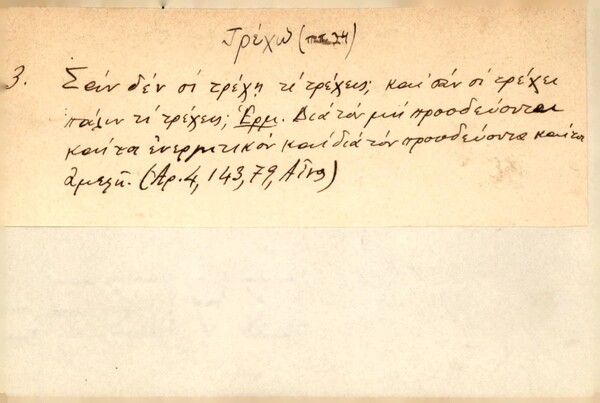 Τρέχω (24)
3. Σάν δέν σέ τρέχη τί τρέχεις; και σάν σέ τρέχει
πάλιν τί τρέχεις; Ερμ. Διά τόν μή προοδεύοντα
καίτοι ενεργητικόν και διά τόν προοδεύοντα καίτοι
αμελή. (Αρ. 4, 143, 79, Αίνος)